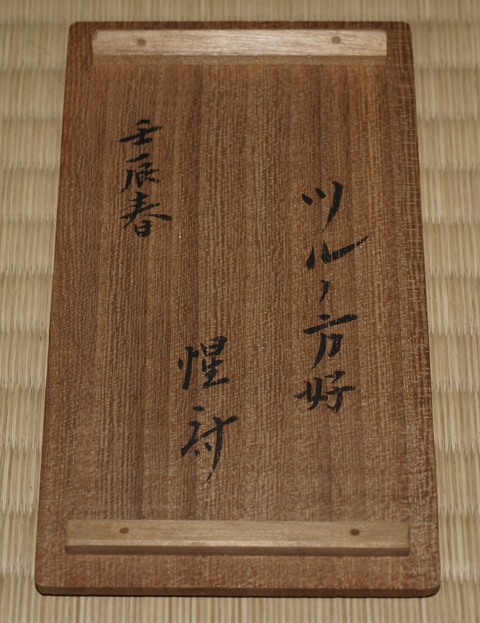 ツルノ方好
惺
壬辰春